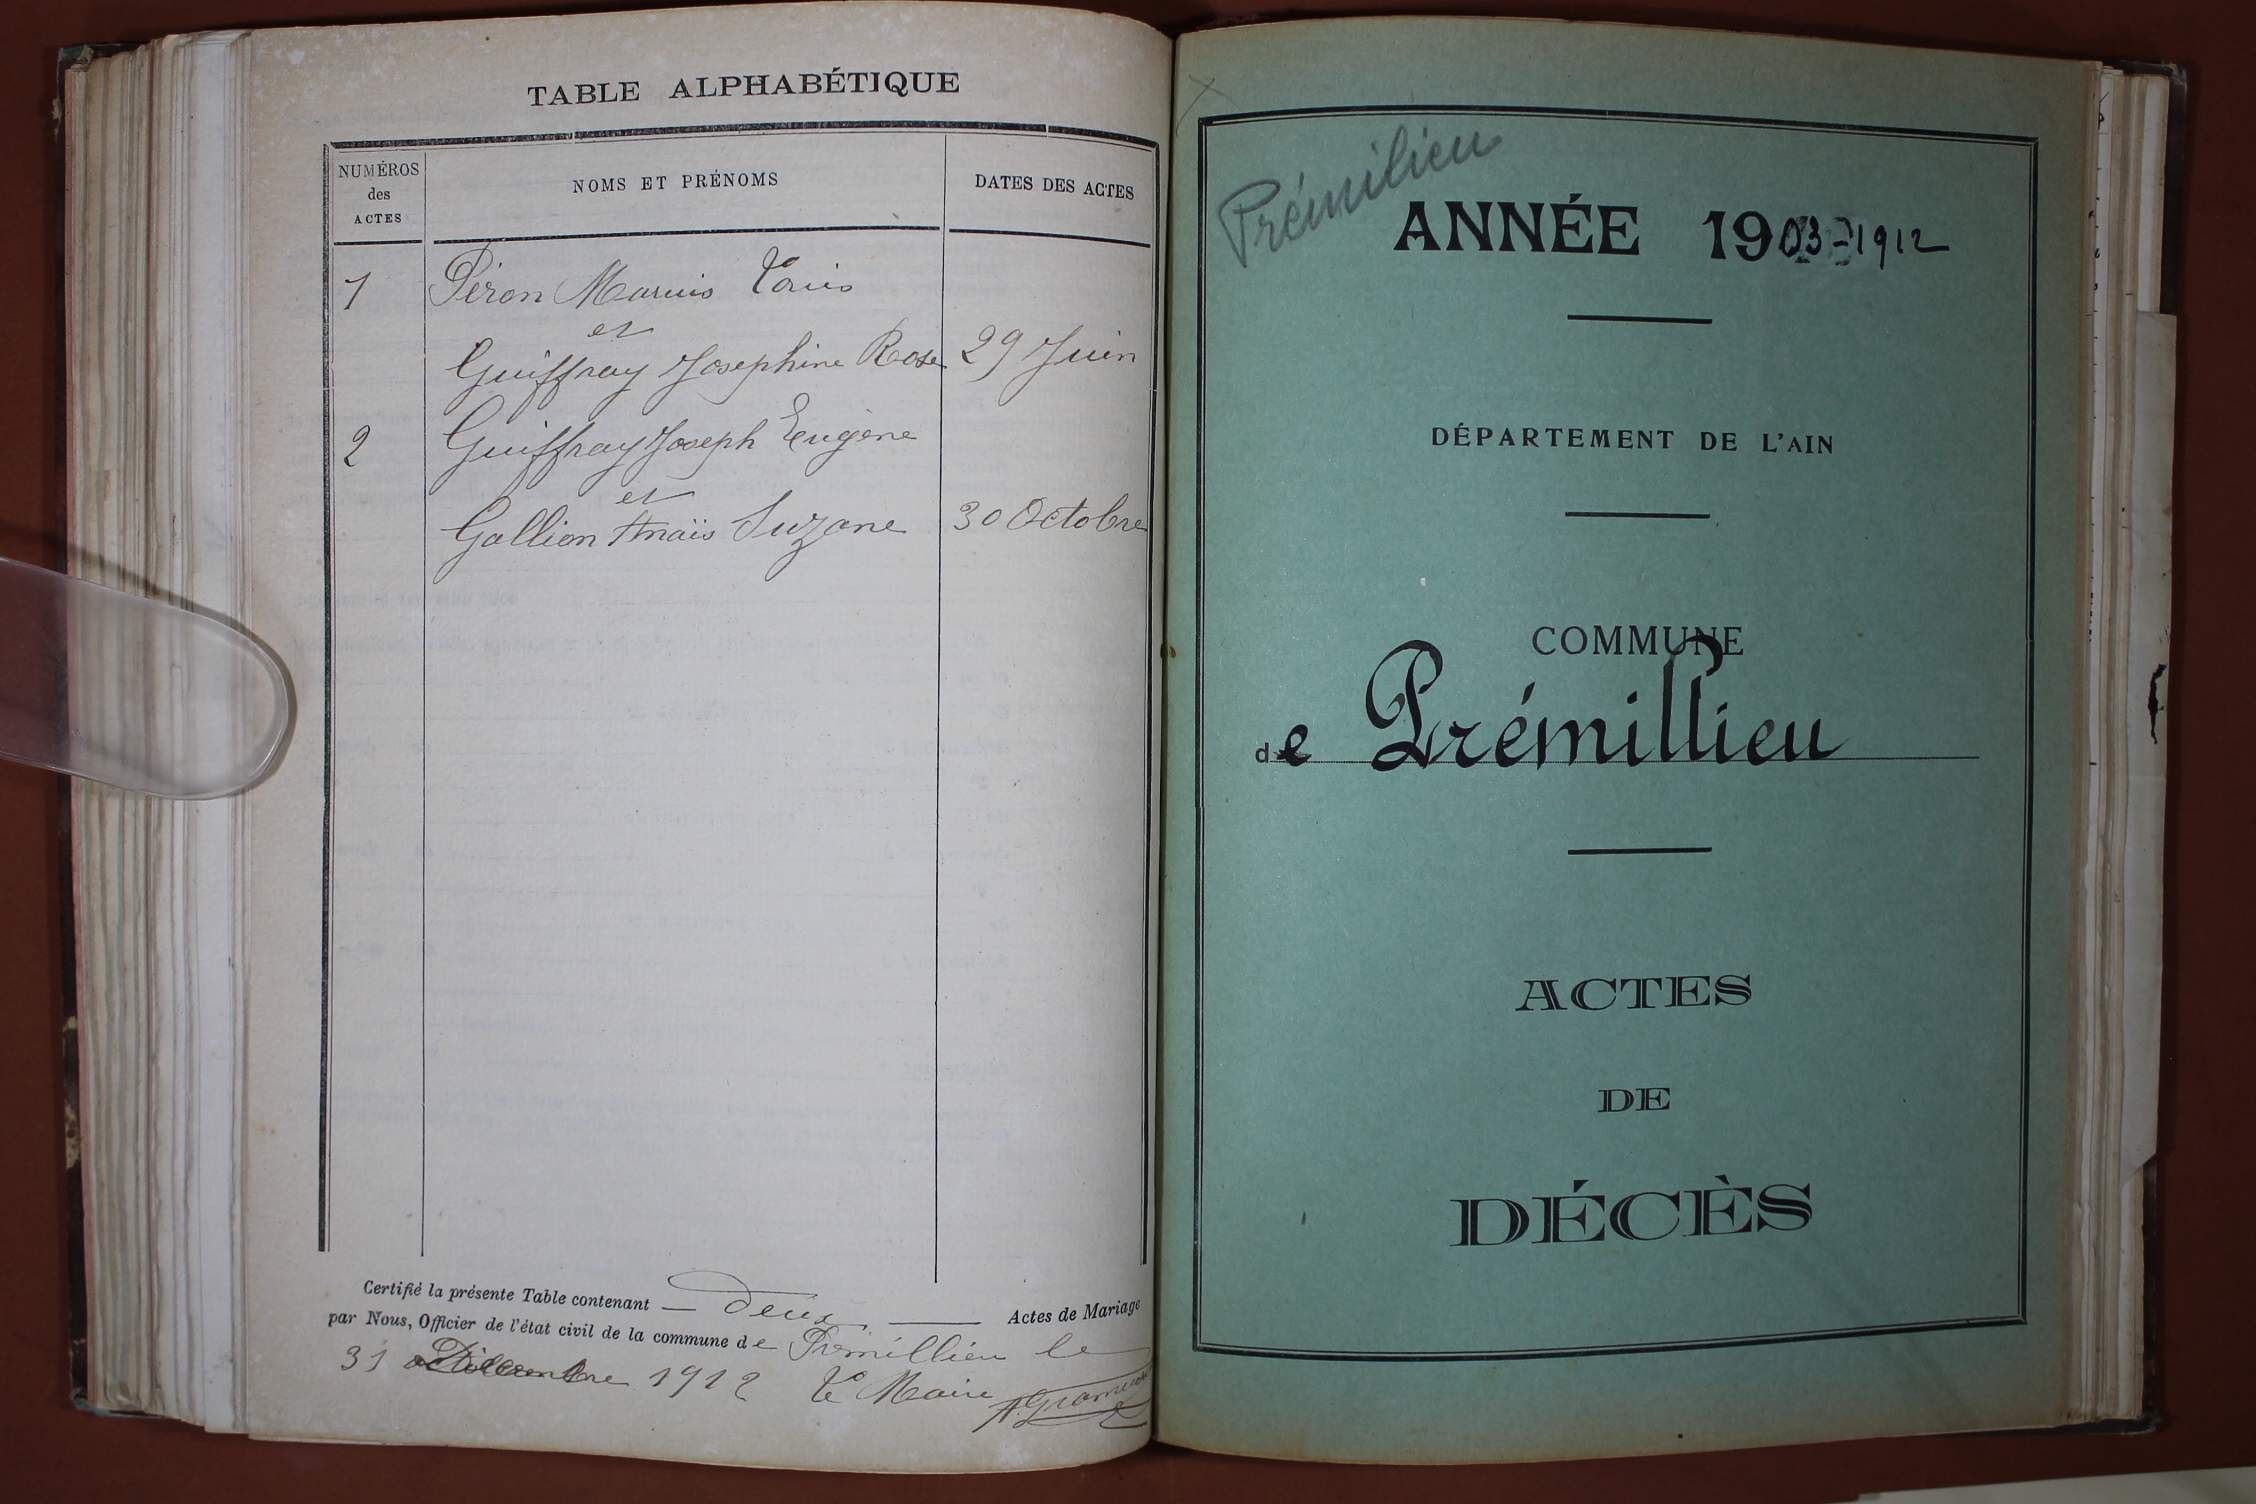 TABLE ALPHABÉTIQUE
NUMÉROS
des
ACTES
NOMS ET PRÉNOMS
DATES DES ACTES
1 Péron Marius Louis
et
Guiffray Josephine Rose 29 Juin
2 Guiffray Joseph Eugène
et
Gallion Anaïs Suzane 30 Octobre
Certifié la présente Table contenant — deux — Actes de Mariage
par Nous, Officier de l'état civil de la commune de Prémillieu le
31 Décembre 1912 Le Maire
Prémilieu
ANNÉE 1903-1912
DÉPARTEMENT DE L'AIN
COMMUNE
de Prémillieu
ACTES
DE
DÉCÈS